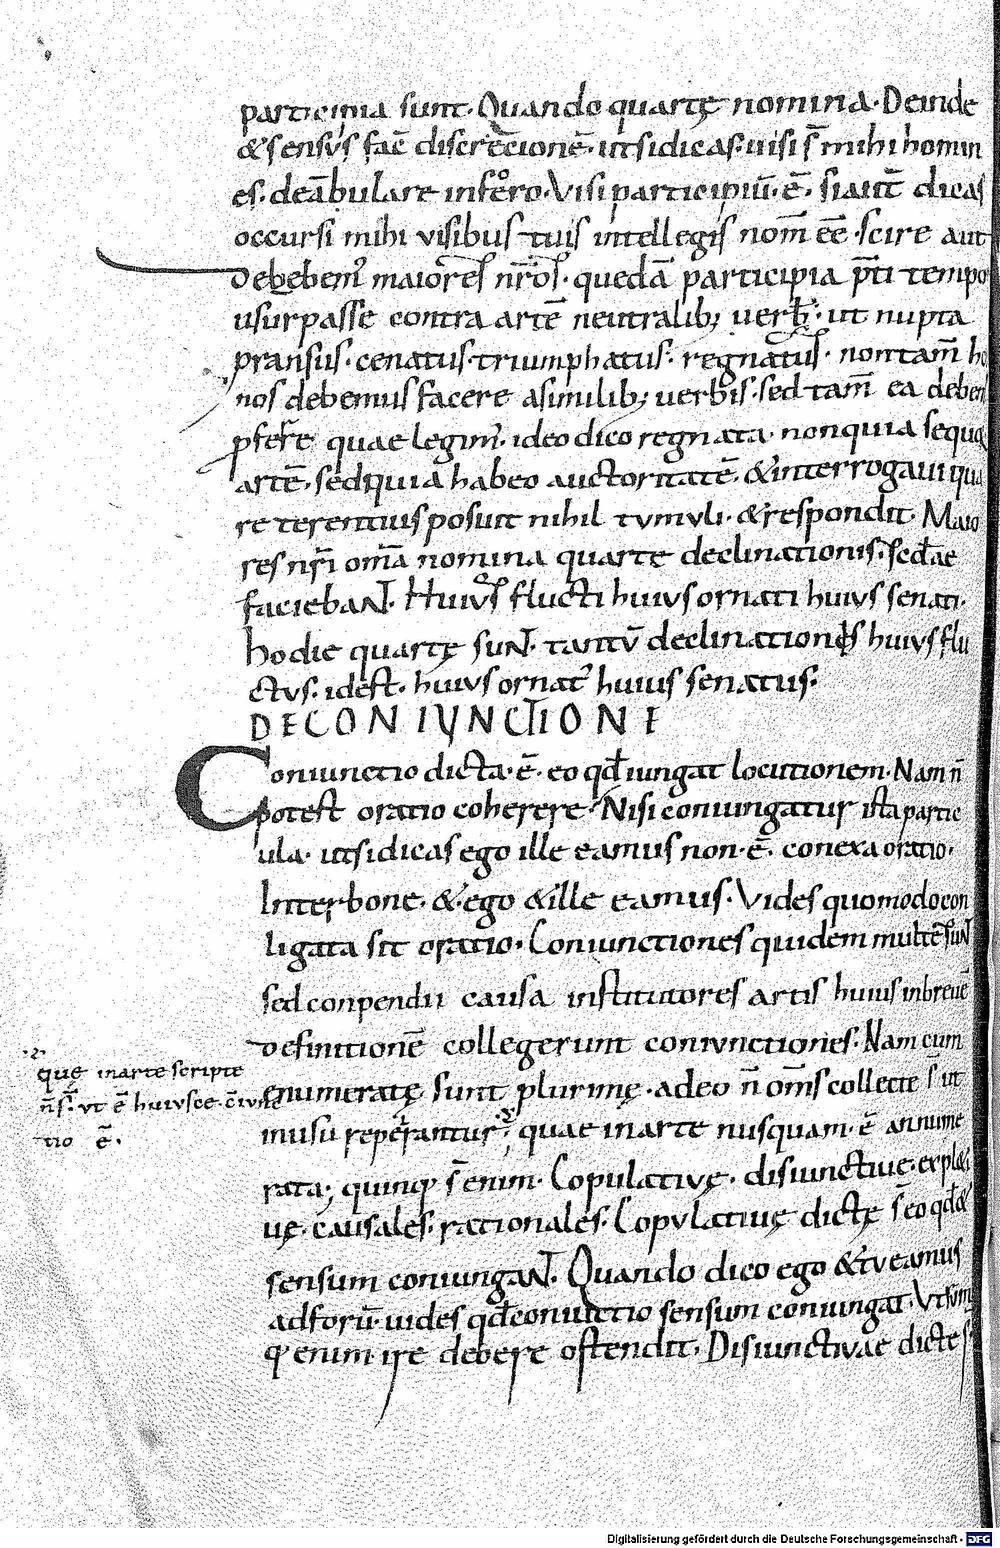 participia sunt. Quando quartę nomina. Deinde
& sensus fac̄ discrecionē. ut si dicas. uisi s̄ mihi homin
es. deābulare in foro. Visi participiū. ē. si aut̄ dicas
occursi mihi visibus tuis intellegis nom̄ eē. scire aut
debebem̓ maiores nr̄os. quedā participia p̄ti tempo
usurpasse contra artē neutralib; uerb̄. ut nupta
pransus. cenatus. triumphatus. regnatus. non tam̄ ho
nos debemus facere a similib; uerbis. sed tam̄ ea deben
p̄ferre quae legim̓. ideo dico regnata. non quia sequa
artē. sed quia habeo auctoritatē. & interrogaui qua
re terentius posuit nihil tumuli. & respondit. Maio
res nr̄i om̄a nomina quartę declinationis. sc̄dae
faciebaNT. Huius flucti huius ornati huius senati.
hodie quartę suNT. tantū declinationes huius flu
ctus. id est. huius ornat̓ huius senatus.
DE CONIUNCTIONE
Coniunctio dicta. ē. eo qd̄ iungat locutionem. Nam n̄
potest oratio coherere. Nisi coniungatur ista partic
ula. ut si dicas ego ille eamus non. ē. conexa oratio.
Inter bone. & ego & ille eamus. Vides quomodo con
ligata sit oratio. Coniunctiones quidem multę suNT
sed conpendii causa institutores artis huius in breuē
definitionē collegerunt coniunctiones. Nam cum
enumeratę sunt plurimę. adeo n̄ om̄s collecte s̄ ut
in usu reperiantur. quae in arte nusquam. ē annume
que in arte scripte
n̄ s̄. ut ē huiusce. cō iunc
tio ē.
rata; quinq; s̄ enim. Copulatiuę. disiunctiue. expl&i
uę. causales. rationales. Copulatiuę dictę s̄ eo qd̄ &
sensum coniungaNT. Quando dico ego & tu eamus
ad forū. uides qd̄ coniunctio sensum coniungat. Utrūm
q; enim ire debere ostendit. Disiunctivae dicte s̄
Digitalisierung gefördert durch die Deutsche Forschungsgemeinschaft - DFG